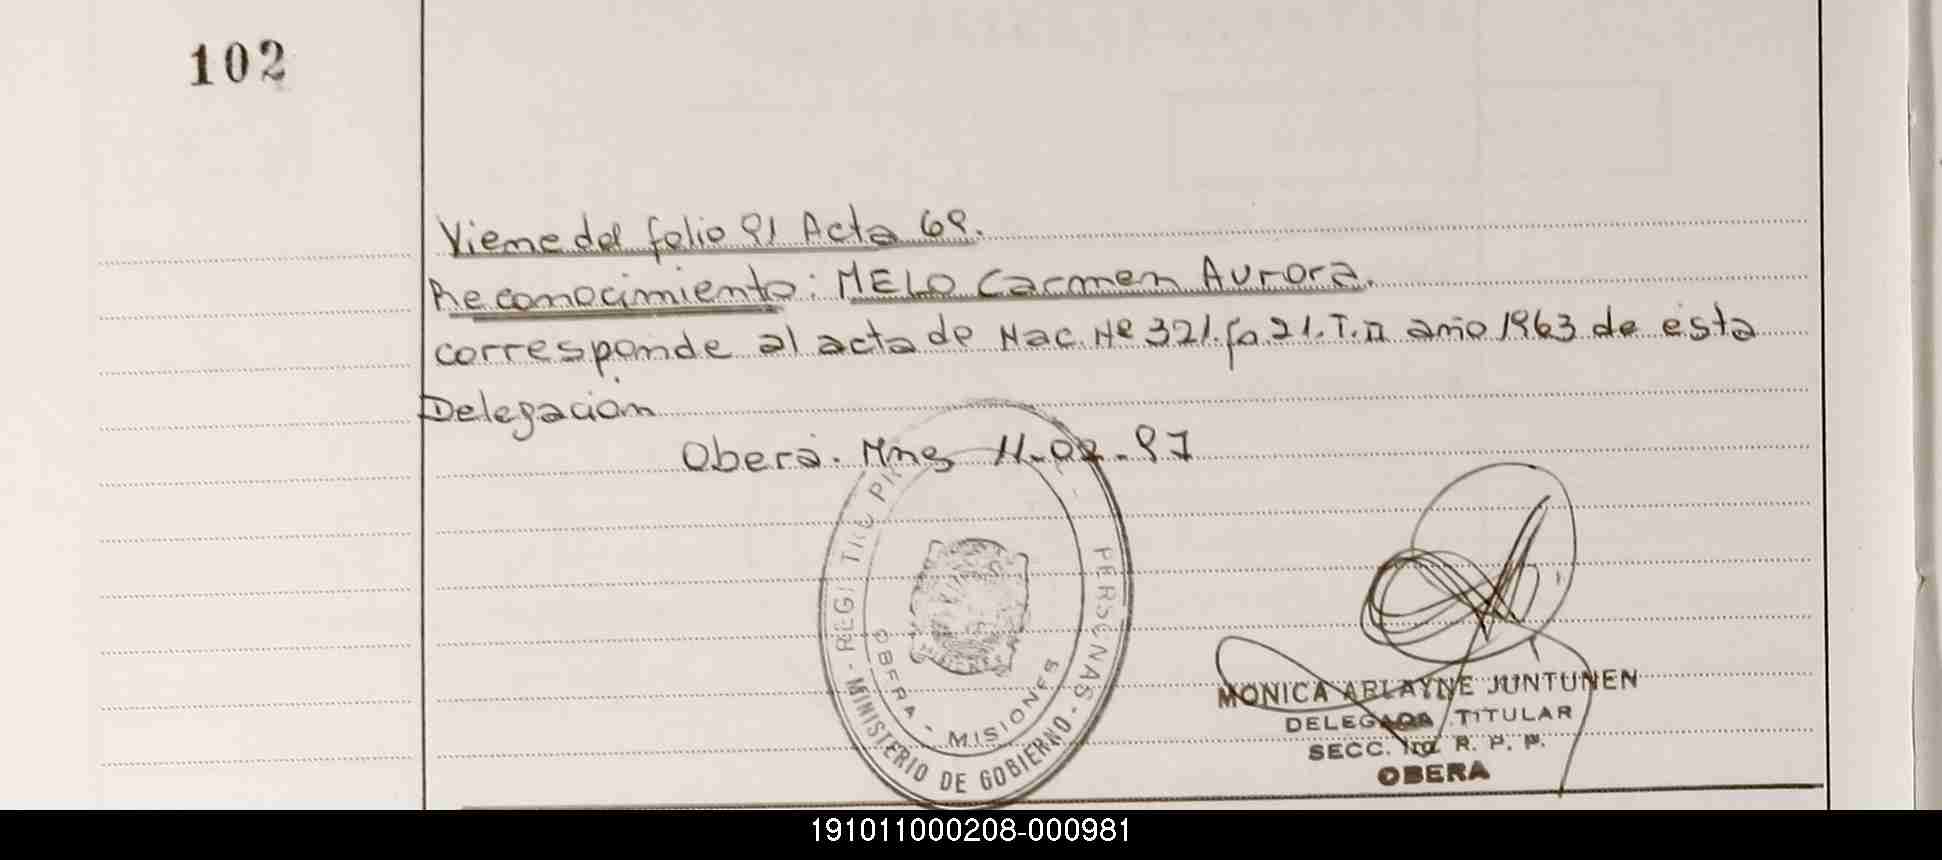 102
Viene del folio 91 Acta 69.
Reconocimiento: MELO Carmen Aurora.
corresponde al acta de Nac. Nº 321. fo. 21. T. II año 1963 de ésta
Delegación
Oberá. Mns 11-02-97
PERSONAS
OBERA - MISIONES
MINISTERIO DE GOBIERNO
MONICA ARLAYNE JUNTUNEN
DELEGADA TITULAR
SECC. 1ra R. P. P.
OBERA
191011000208-000981